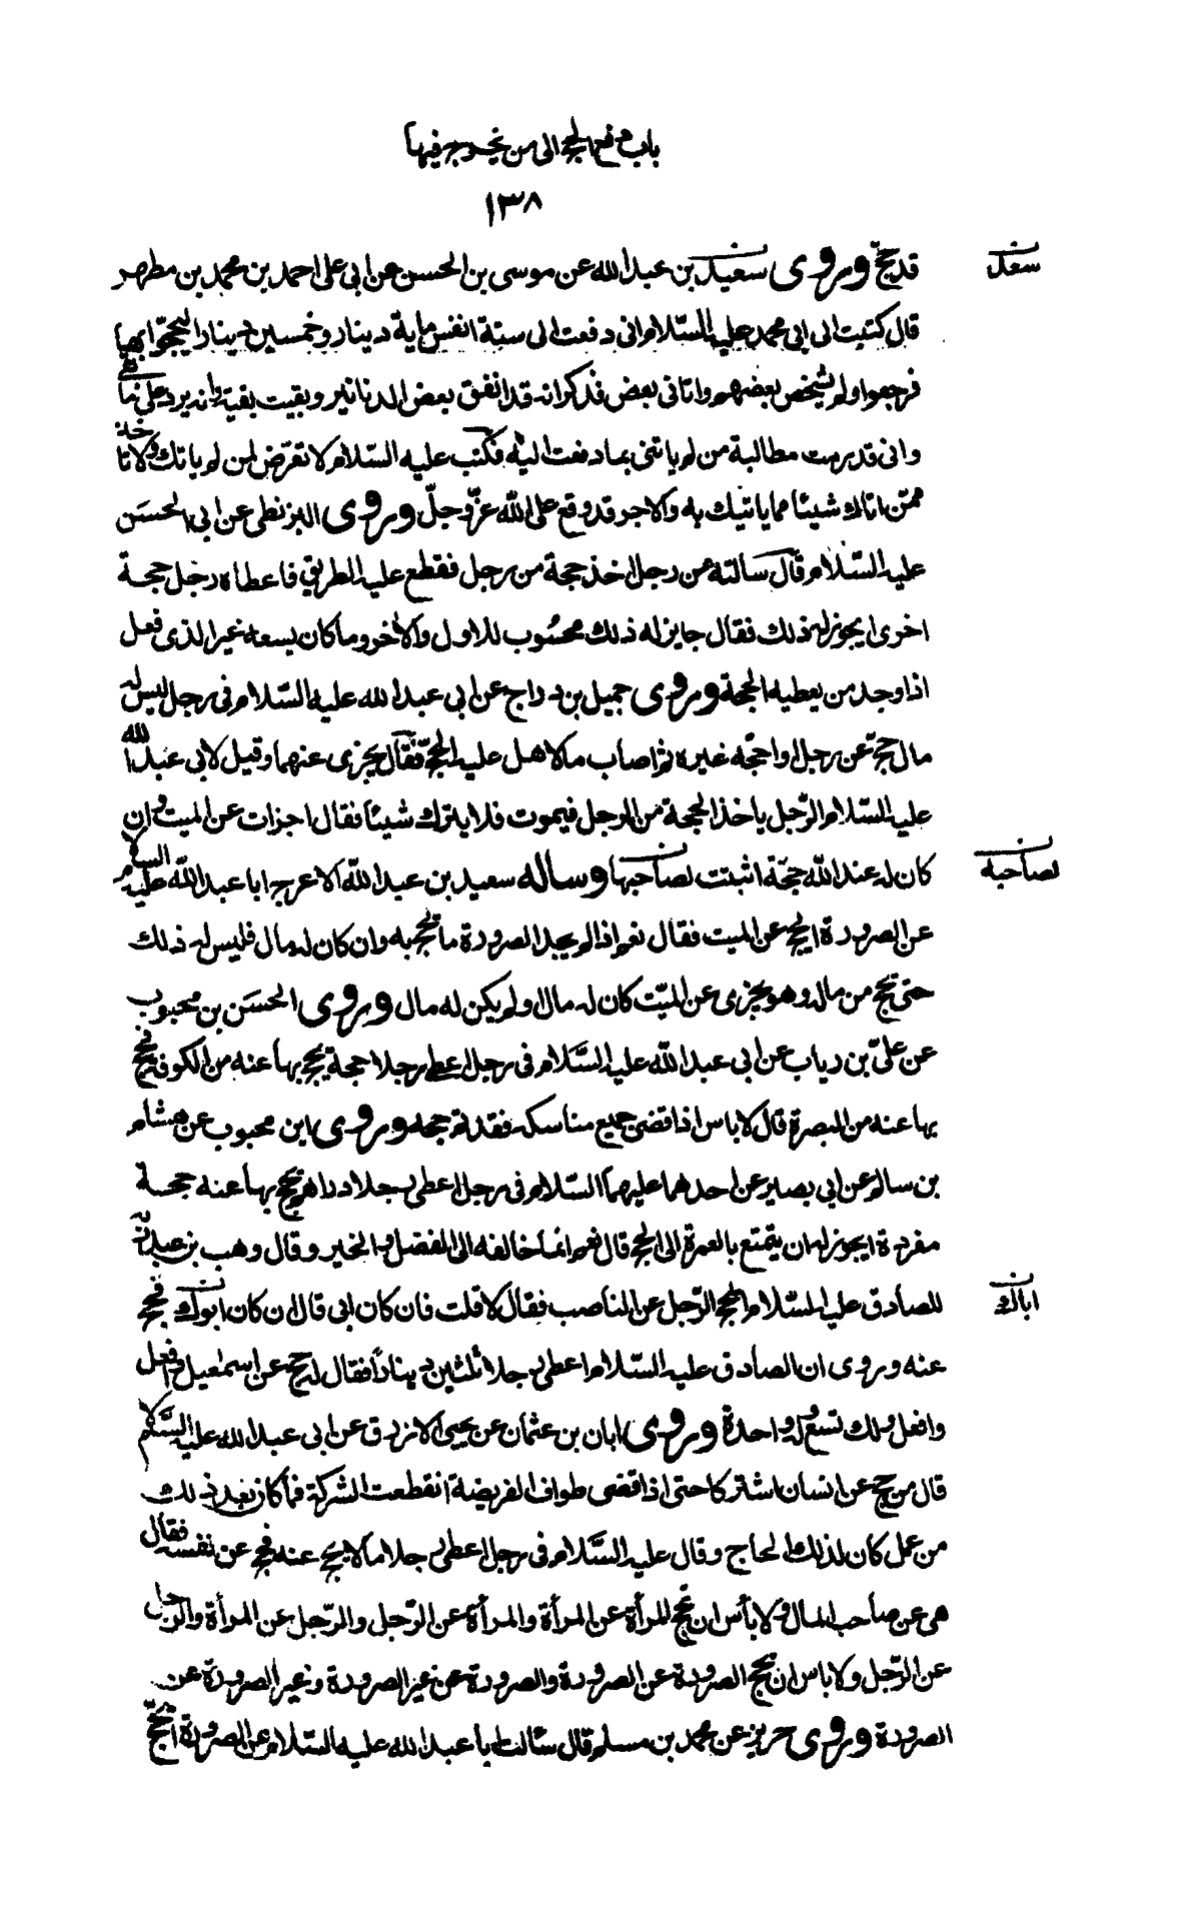 باب دفع الحج الى من يخرج فيها
١٣٨
قد حجّ وروى سعيد بن عبد الله عن موسى بن الحسن عن ابى على احمد بن محمد بن مطهر
سعد
قال كتبت الى ابى محمد عليه السّلام انى دفعت الى ستة انفس ماية دينار وخمسين دينارا ليحجّوا بها
فرجعوا ولم يشخص بعضهم واتانى بعض فذكر انه قد انفق بعض الدنانير وبقيت بقية وانه يرد علىّ ما بقى
وانى قد رمت مطالبة من لم ياتنى بما دفعت اليه فكتب عليه السّلام لا تعرّض لمن لم ياتك ولا تاخذ
ممّن اتاك شيئا مما ياتيك به والاجر قد وقع على الله عزّ وجلّ وروى البزنطى عن ابى الحسن
عليه السّلام قال سالته عن رجل اخذ حجة من رجل فقطع عليه الطريق فاعطاه رجل حجة
اخرى ايجوز له ذلك فقال جايز له ذلك محسُوب للاول والاخر وما كان يسعه غير الذى فعل
اذا وجد من يعطيه الحجة وروى جميل بن دراج عن ابى عبد الله عليه السّلام فى رجل ليس له
مال حجّ عن رجل او احجّه غيره ثم اصاب مالا هل عليه الحجّ فقال يجزى عنهما وقيل لابى عبد الله
عليه السّلام الرّجل ياخذ الحجة من الرجل فيموت فلا يترك شيئا فقال اجزات عن الميت وان
كان له عند الله حجّة اثبتت لصاحبها وساله سعيد بن عبد الله الاعرج ابا عبد الله عليه السلام
لصاحبه
عن الصرورة ايحج عن الميت فقال نعم اذا لم يجد الصرورة ما يحج به وان كان له مال فليس له ذلك
حتى يحج من ماله وهو يجزى عن الميّت كان له مال او لم يكن له مال وروى الحسَن بن محبوب
عن علىّ بن رياب عن ابى عبد الله عليه السَّلام فى رجل اعطى رجلا حجة يحج بها عنه من الكوفة فحج
بها عنه من البصرة قال لا باس اذا قضى جميع مناسكه فقد تم حجه وروى ابن محبوب عن هشام
بن سالم عن ابى بصير عن احدهما عليهما السّلام فى رجل اعطى رجلا دراهم يحج بها عنه حجة
مفردة ايجوز له ان يتمتع بالعمرة الى الحج قال نعم انما خالفه الى الفضل والخير وقال وهب بن عبد ربه
للصادق عليه السّلام ايحج الرّجل عن الناصب فقال لا قلت فان كان ابى قال ان كان ابوك فحج
اباك
عنه وروى ان الصادق عليه السّلام اعطى رجلا ثلثين دينارًا فقال له حج عن اسمٰعيل وافعل
وافعل ولك تسع وله واحدة وروى ابان بن عثمان عن يحيى الازرق عن ابى عبد الله عليه السَّلام
قال من حج عن انسان اشتركا حتى اذا قضى طواف الفريضة انقطعت الشركة فما كان بعد ذلك
من عمل كان لذلك الحاج وقال عليه السَّلام فى رجل اعطى رجلا مالا يحج عنه فحج عن نفسه فقال
هى عن صاحب المال ولا بأس ان تحج المرأة عن المرأة والمرأة عن الرّجل والرّجل عن المرأة والرّجل
عن الرّجل ولا باس ان يحج الصرورة عن الصرورة والصرورة عن غير الصرورة وغير الصرورة عن
الصرورة وروى حريز عن محمد بن مسلم قال سئالت ابا عبد الله عليه السّلام عن الصرورة ايحجّ